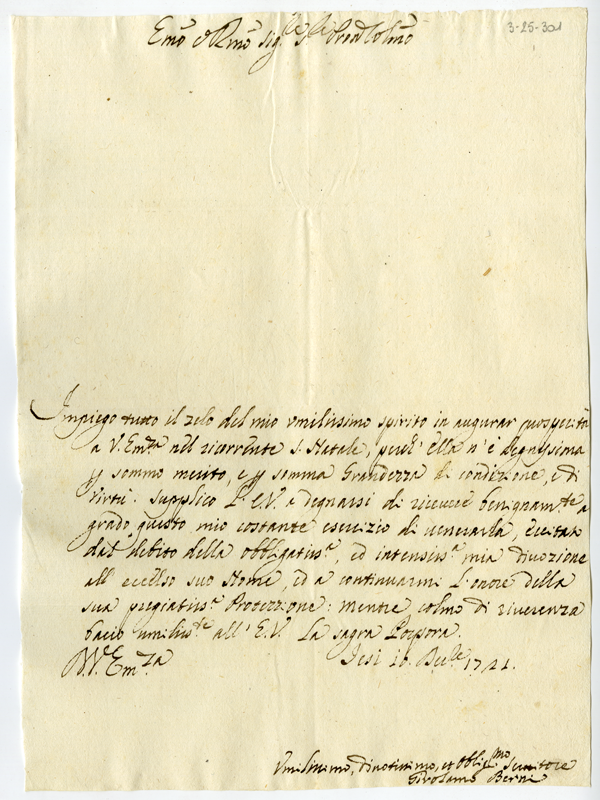 3-25-301
Emõ e Rmõ Sig.re S.re Pron Colmõ
Impiego tutto il zelo del mio umilissimo spirito in augurar prosperità
a V. Emza nel ricorrente S. Natale, perch' ella n'è degnissima
p sommo merito, e p somma Grandezza di condizione, e di
virtù. Supplico l' E.V. a degnarsi di ricever benignamte a
grado questo mio costante esercizio di venerarla, eccitato
dal debito della obbligatissa, ed intensissa mia divozione
all' eccelso suo Nome, ed a continuarmi l'onore della
sua pregiatissa Protezzione: mentre colmo di riverenza
bacio umilisste all' E.V. la sagra Porpora.
D V. Emza Jesi 16 Xbre 1721.
Umilissimo, divotissimo, et obbligmo Servitore
Girolamo Berni